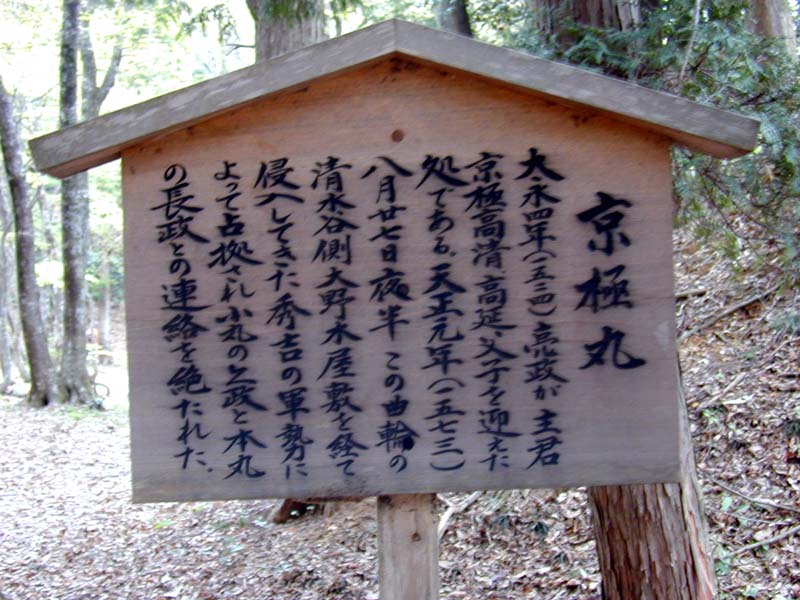 京極丸
大永四年(一五二四)亮政が主君
京極高清、高延父子を迎えた
処である。天正元年(一五七三)
八月廿七日夜半この曲輪の
清水谷側大野木屋敷を経て
侵入してきた秀吉の軍勢に
よって占拠され小丸の久政と本丸
の長政との連絡を絶たれた。